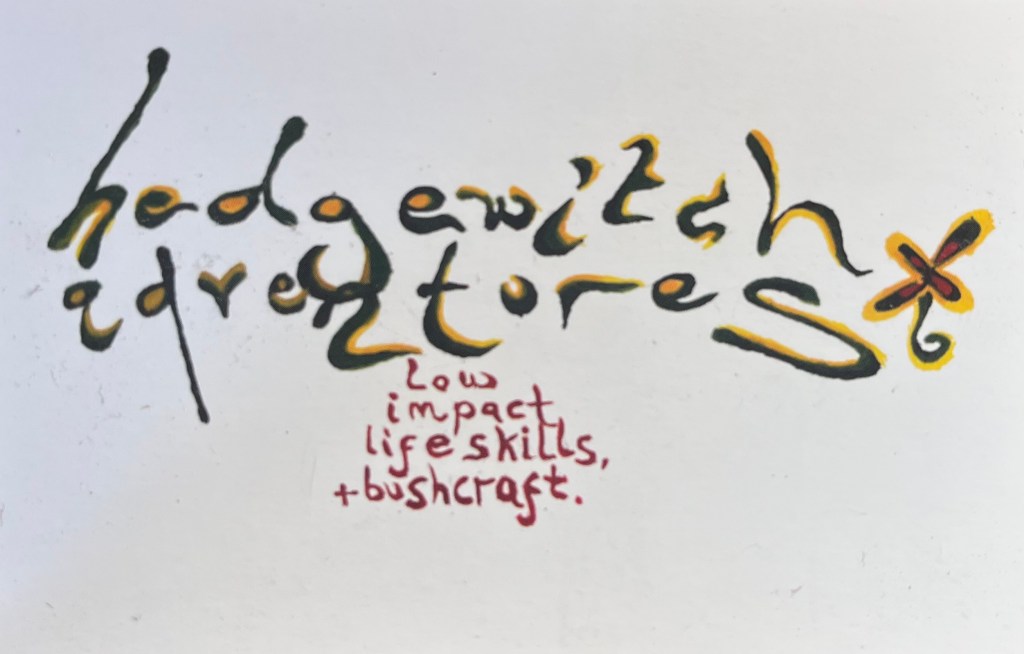 hedgewitch
adventures
low
impact
life skills,
+bushcraft.